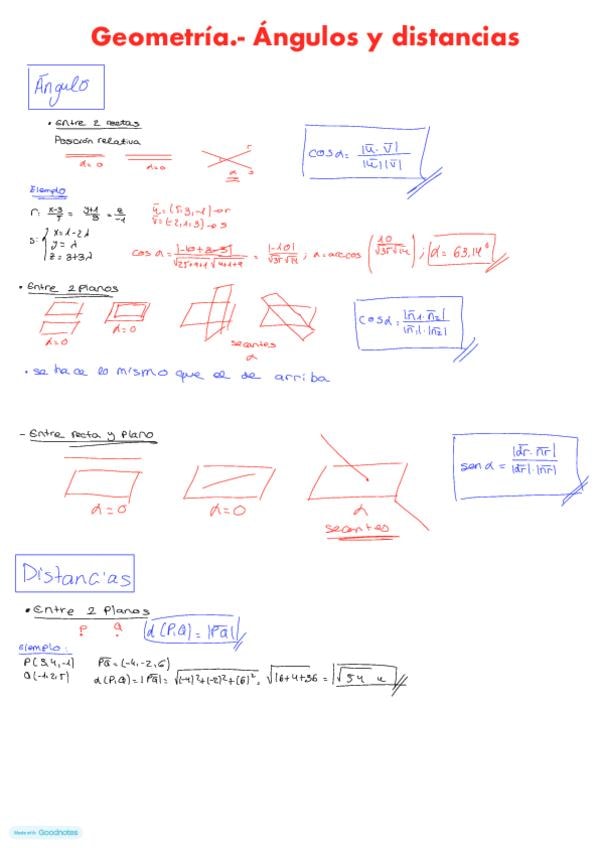 Geometría.- Ángulos y distancias
Ángulo
• Entre 2 rectas
Posición relativa
α=0
α=0
r
s
α
cos α = |ū · v̄| / |ū| |v̄|
Ejemplo
r: x-3/5 = y+1/3 = z/-1
ū = (5,3,-1) → r
v̄ = (-2,1,3) → s
s: { x=1-2λ
y=λ
z=3+3λ
cos α = |-10+3-3| / √25+9+1 √4+1+9 = |-10| / √35 √14 ; α = arccos (10 / √35 √14) ; α = 63,14°
• Entre 2 planos
α=0
α=0
secantes
α
cos α = |n̄1 · n̄2| / |n̄1| · |n̄2|
• se hace lo mismo que el de arriba
- Entre recta y plano
α=0
α=0
α
secantes
sen α = |d̄r · n̄r| / |d̄r| · |n̄r|
Distancias
• Entre 2 Planos
P
Q
d(P,Q) = |P̄Q̄|
Ejemplo:
P(3,4,-1)
P̄Q̄ = (-4,-2,6)
Q(-1,2,5)
d(P,Q) = |P̄Q̄| = √(-4)²+(-2)²+(6)² = √16+4+36 = √54 u
Made with Goodnotes